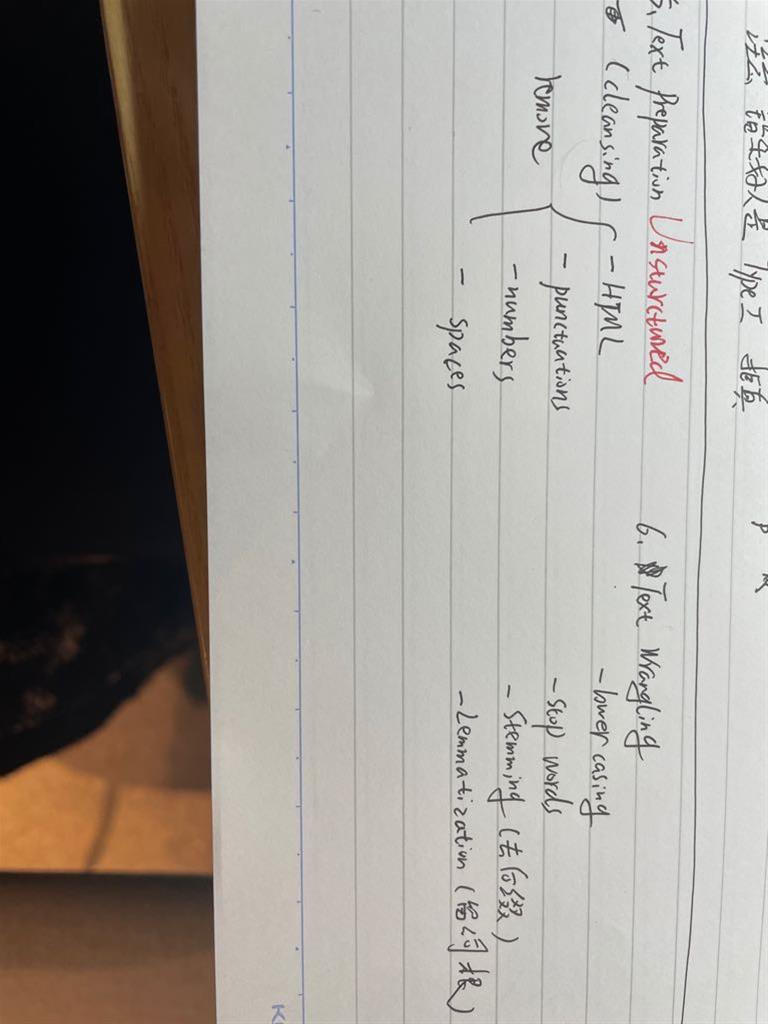 Type I 指
5. Text Preparation Unsurctured
(cleansing)
remove
- HTML
- punctuations
- numbers
- spaces
6. Text Wrangling
- lower casing
- stop words
- Stemming (去后缀)
- Lemmatization (留词根)
K